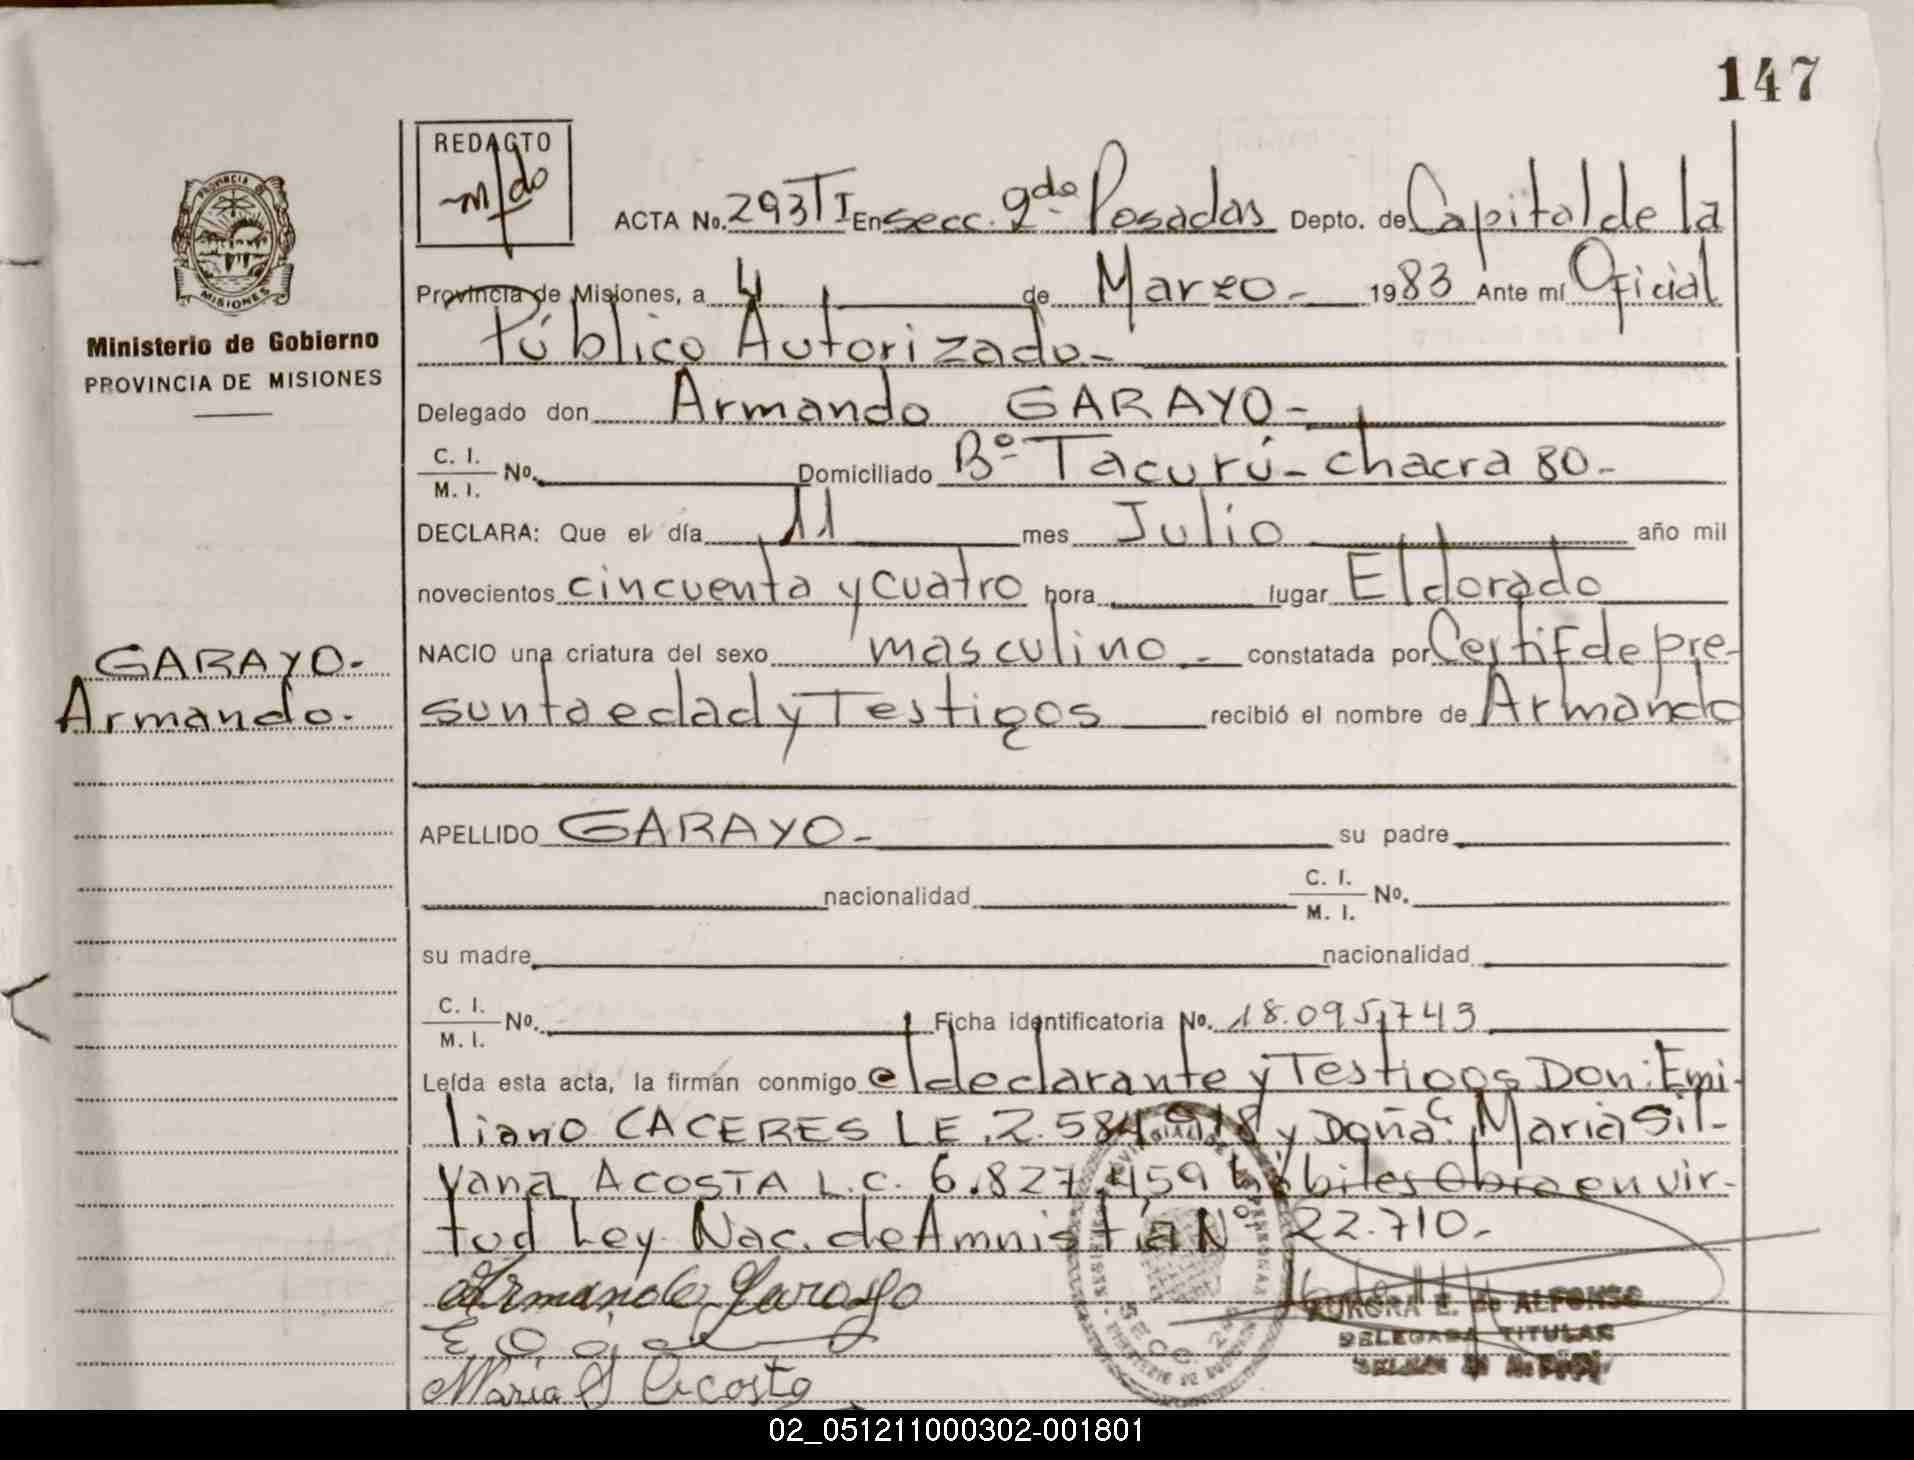 147
REDACTO
PROVINCIA DE
MISIONES
Ministerio de Gobierno
PROVINCIA DE MISIONES
ACTA No. 293 TI En secc. 2da Posadas Depto. de Capital de la
Provincia de Misiones, a 4 de Marzo - 1983 Ante mí Oficial
Público Autorizado -
Delegado don Armando GARAYO -
C. I.
M. I. No. Domiciliado Bº Tacurú - chacra 80 -
DECLARA: Que el día 11 mes Julio año mil
novecientos cincuenta y cuatro hora lugar Eldorado
NACIO una criatura del sexo masculino - constatada por Certif de pre-
GARAYO -
Armando -
sunta edad y Testigos recibió el nombre de Armando
APELLIDO GARAYO - su padre
nacionalidad C. I.
M. I. No.
su madre nacionalidad
C. I.
M. I. No. Ficha identificatoria No. 18.095.743
Leída esta acta, la firman conmigo el declarante y Testigos Don: Emi-
liano CACERES LE. 2.584.918 y Doña María Sil-
vana ACOSTA L.C. 6.827.459 hábiles Obra en vir-
tud Ley Nac. de Amnistía Nº 22.710 -
Armando Garayo
Maria S Acosta
SECC. 2da
AURORA E. de ALFONSO
DELEGADA TITULAR
02_051211000302-001801